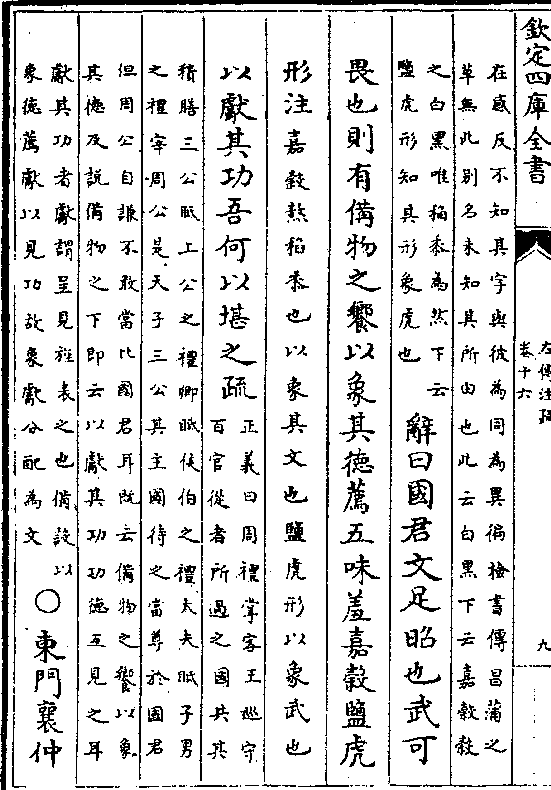 欽定四庫全書
左傳注疏
卷十六
九
在感反不知其字與彼為同為異徧檢書傳昌蒲之
草無此别名未知其所由也此云白黑下云嘉穀穀
之白黑唯稻黍為然下云
鹽虎形知其形象虎也
辭曰國君文足昭也武可
畏也則有備物之饗以象其德薦五味羞嘉穀鹽虎
形注嘉穀熬稻黍也以象其文也鹽虎形以象武也
以獻其功吾何以堪之疏
正義曰周禮掌客王巡守
百官從者所過之國共其
積膳三公眡上公之禮卿眡侯伯之禮大夫眡子男
之禮宰周公是天子三公其主國待之當尊於國君
但周公自謙不敢當比國君耳既云備物之饗以象
其德及說備物之下即云以獻其功功德互見之耳
獻其功者獻謂呈見旌表之也備設以
象德薦獻以見功故象獻分配為文
○東門襄仲